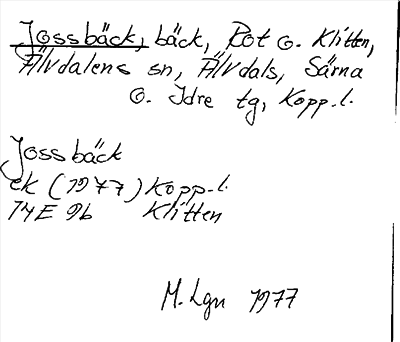 Jossbäck, bäck, Rot o. Klitten,
Älvdalens sn, Älvdals, Särna
o. Idre tg, Kopp.l.
Jossbäck
ek (1977) Kopp.l.
14E 9b Klitten
M. Lgn 1977